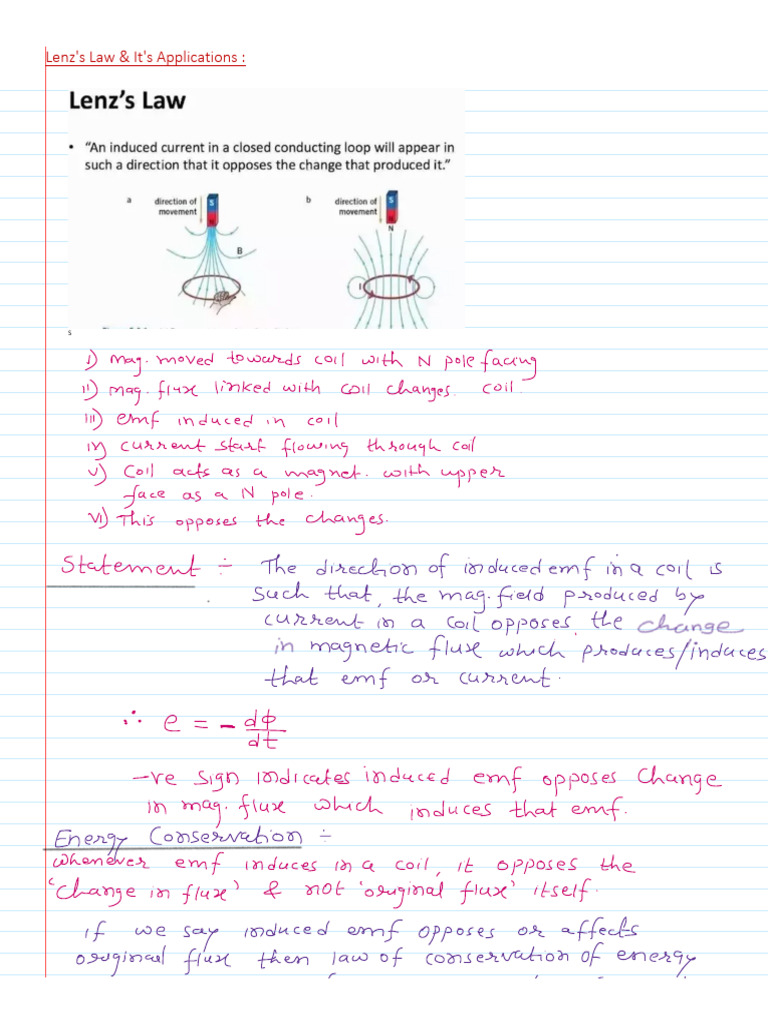 Lenz's Law & It's Applications :
Lenz's Law
• "An induced current in a closed conducting loop will appear in
such a direction that it opposes the change that produced it."
a direction of movement S B
b direction of movement S N I
s
i) mag. moved towards coil with N pole facing
ii) mag. flux linked with coil changes. coil.
iii) emf induced in coil
iv) current start flowing through coil
v) Coil acts as a magnet. with upper
face as a N pole.
vi) This opposes the changes.
Statement ÷ The direction of induced emf in a coil is
such that, the mag. field produced by
current in a coil opposes the change
in magnetic flux which produces/induces
that emf or current.
∴ e = - dϕ/dt
-ve sign indicates induced emf opposes change
in mag. flux which induces that emf.
Energy Conservation ÷
whenever emf induces in a coil, it opposes the
'change in flux' & not 'original flux' itself.
if we say induced emf opposes or affects
original flux then law of conservation of energy